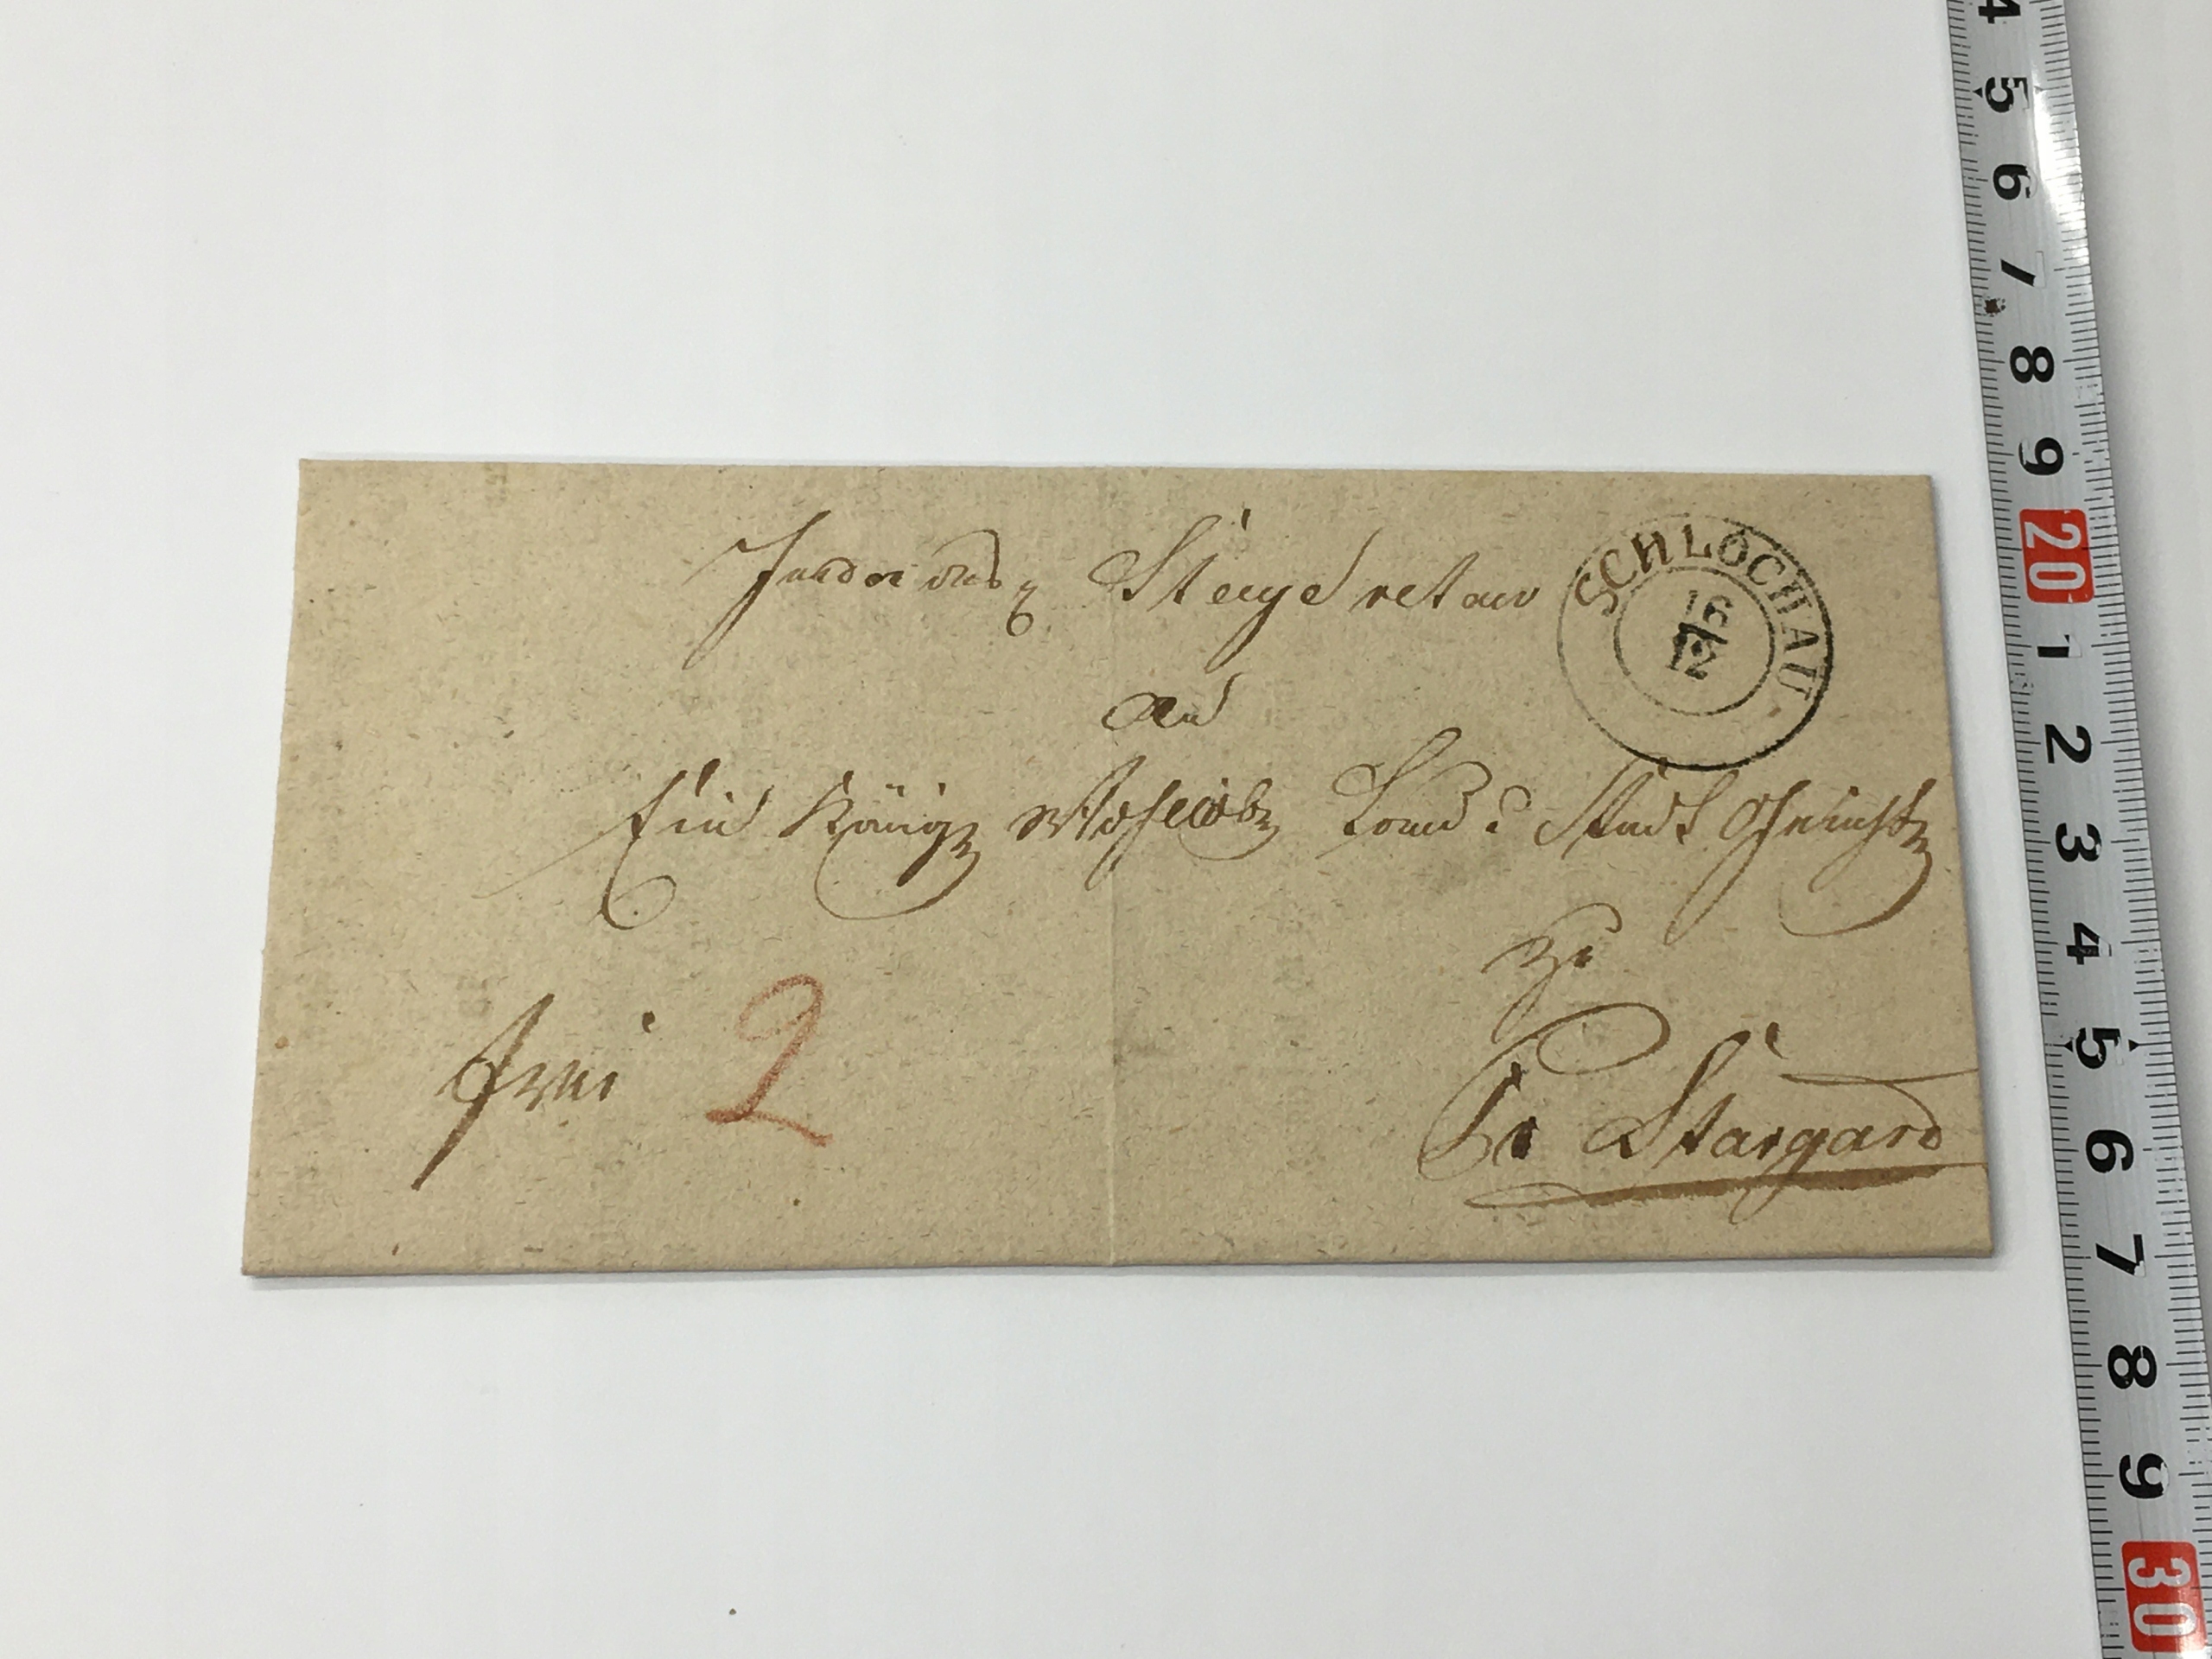 SCHLOCHAU
16
12
an
Ein Königl Wohllöbl Land & Stadt Gericht
zu
Pr Stargard
frei 2
4 5 6 7 8 9 20 1 2 3 4 5 6 7 8 9 30